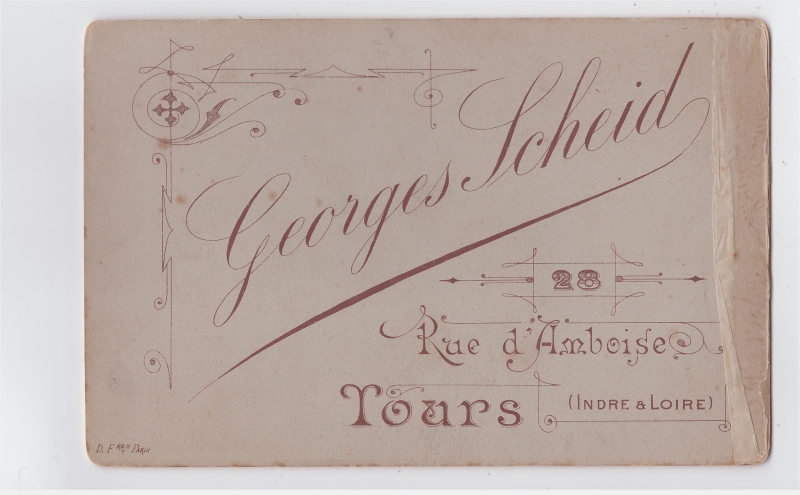 Georges Scheid
28
Rue d'Amboise
Tours (INDRE & LOIRE)
D. FRES Paris